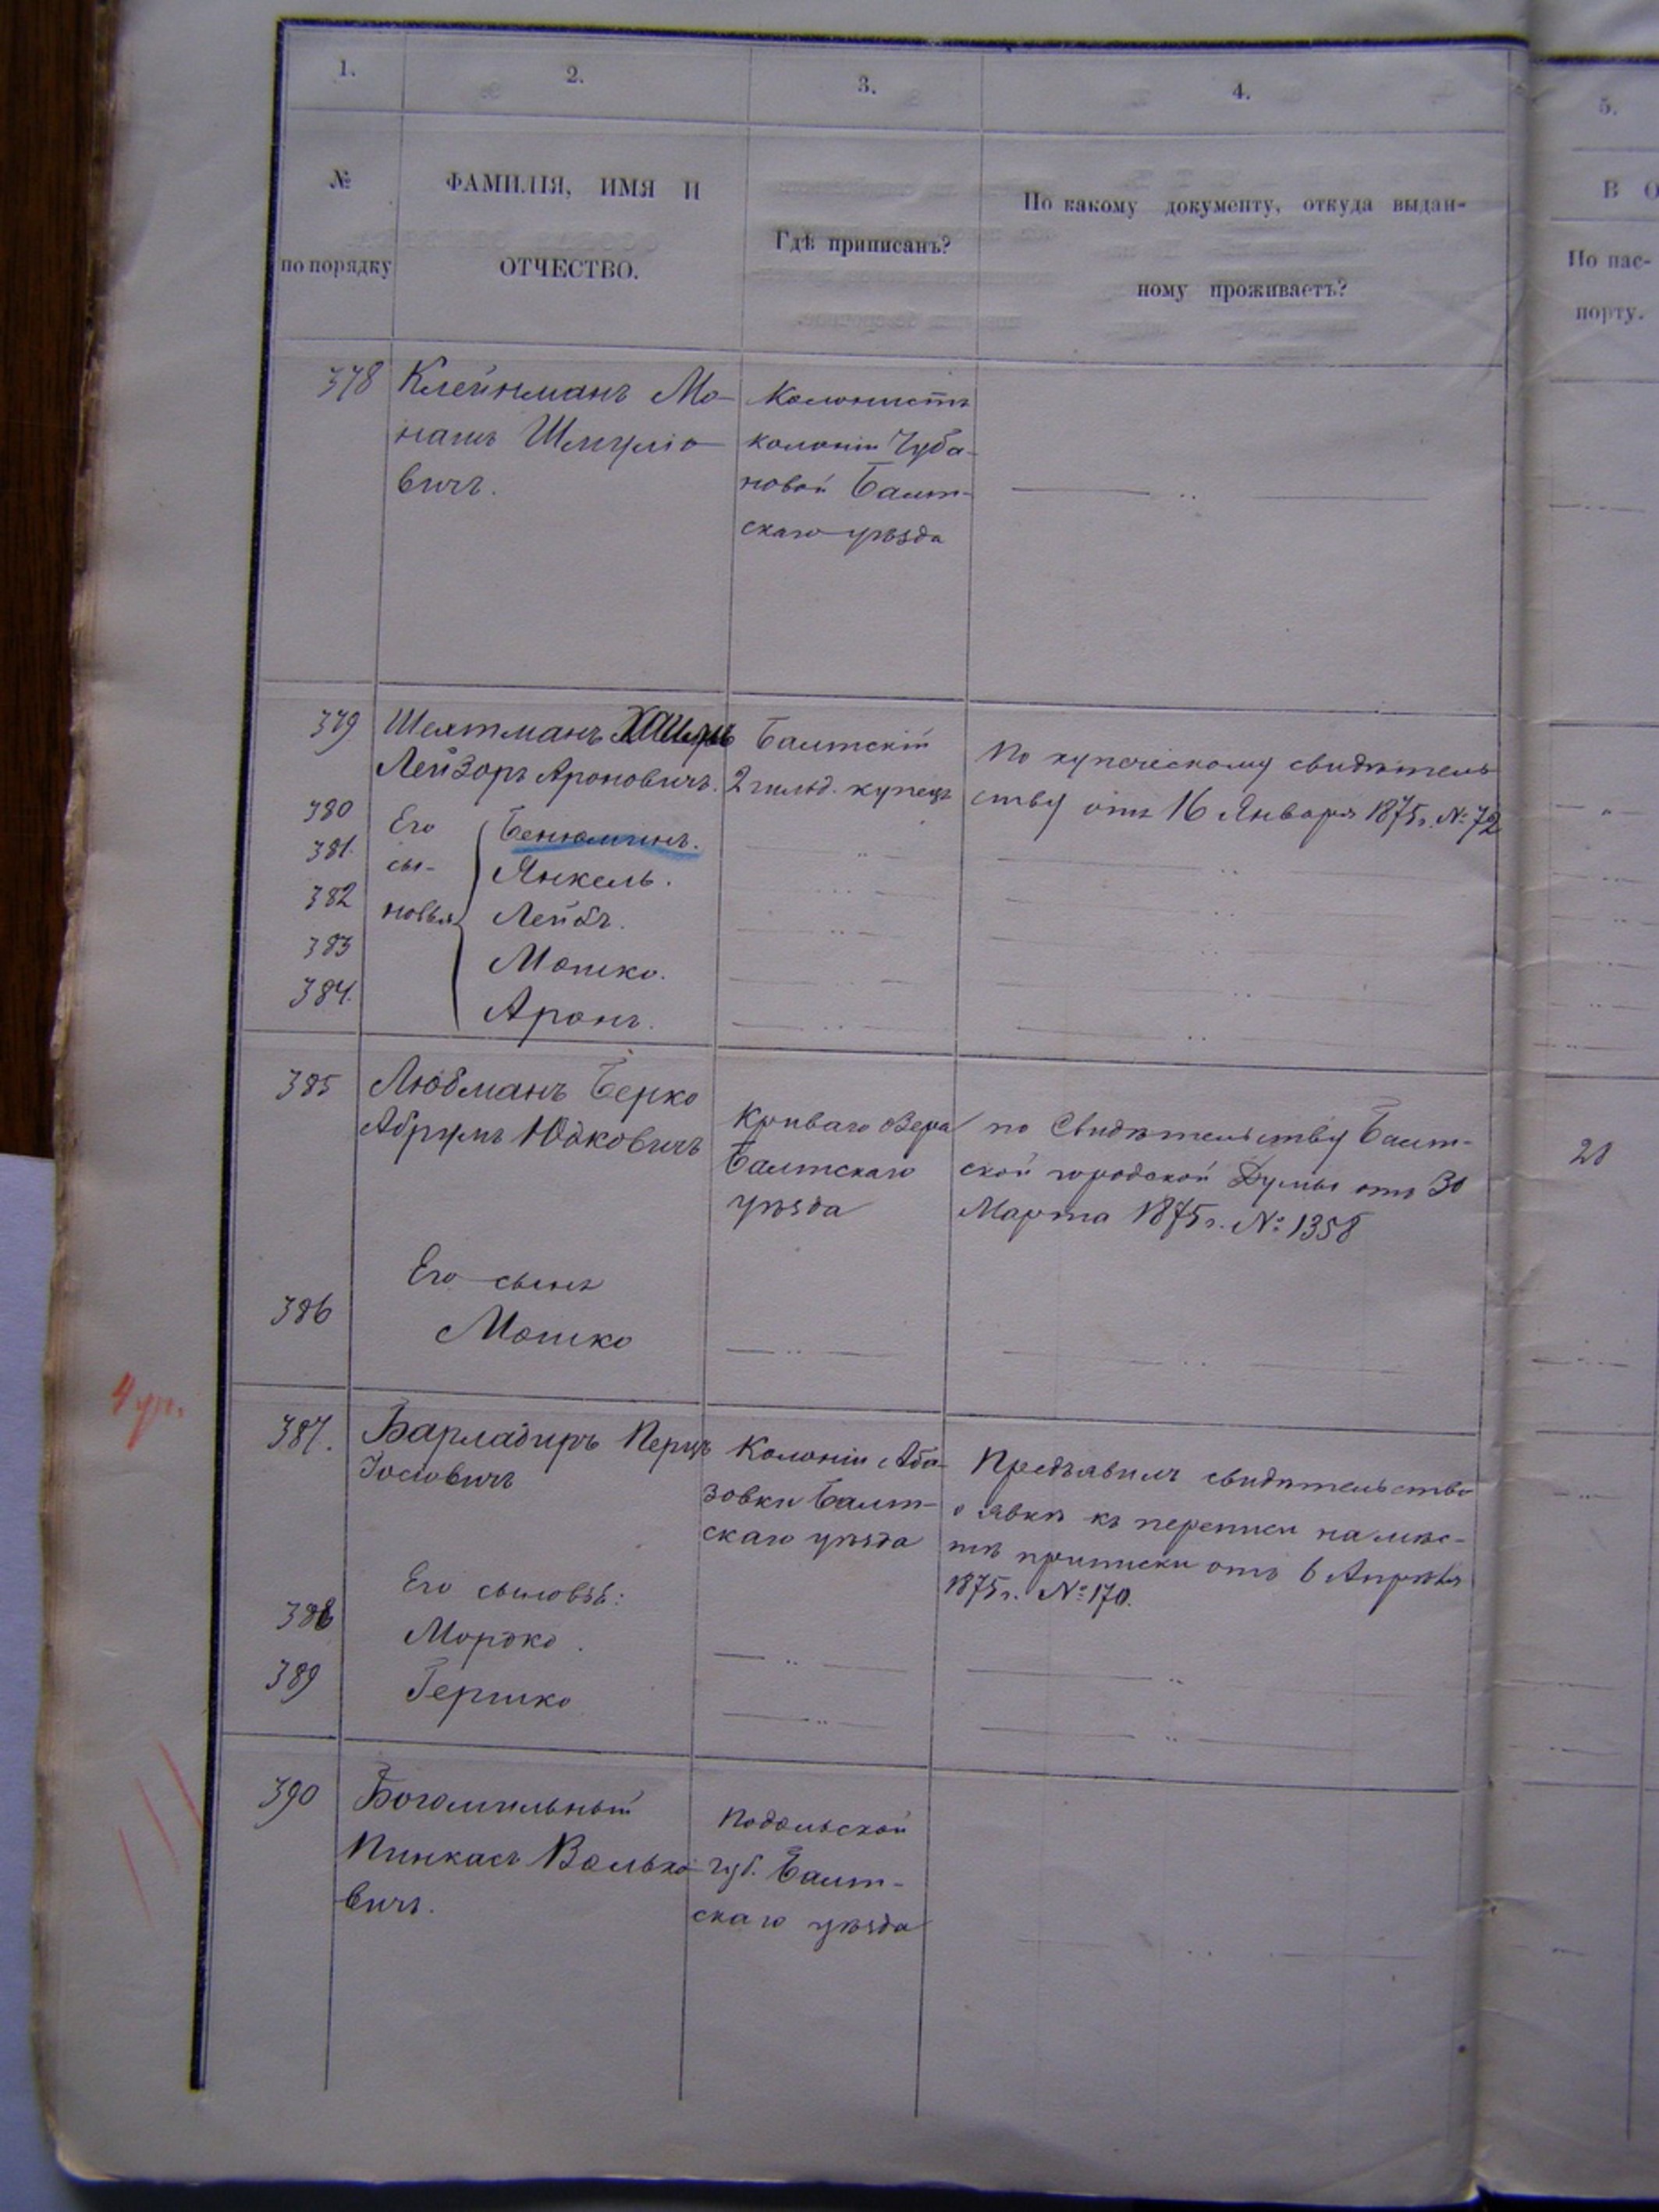 1.
2.
3.
4.
5.
№
по порядку
ФАМИЛІЯ, ИМЯ И
ОТЧЕСТВО.
Гдѣ приписанъ?
По какому документу, откуда выдан-
ному проживаетъ?
В О
По пас-
порту.
378
Клейнманъ Мо-
нашъ Шмуліо-
вичъ.
Колонистъ
колоніи Чуба-
новой Балт-
скаго уѣзда
379
Шехтманъ Хаимъ
Лейзоръ Ароновичъ.
Балтскій
2 гильд. купецъ
По купеческому свидѣтель-
ству отъ 16 Января 1875 г. № 72
380
381.
382
383
384.
Его
сы-
новья
Бенюминъ.
Янкель.
Лейбъ.
Мошко.
Аронъ.
385
Любманъ Берко
Абрумъ Юдковичъ
Криваго Озера
Балтскаго
уѣзда
по Свидѣтельству Балт-
ской городской Думы отъ 30
Марта 1875 г. № 1358
20
Его сынъ
386
Мошко
4 ур.
387.
Барладиръ Перецъ
Іосіовичъ
Колоніи Аба-
зовки Балт-
скаго уѣзда
Предъявилъ свидѣтельство
о явкѣ къ переписи на мѣс-
тѣ приписки отъ 6 Апрѣля
1875 г. № 170.
Его сыновья:
388
Мордко.
389
Гершко
390
Богомильный
Пинкасъ Волько-
вичъ.
Подольской
губ. Балт-
скаго уѣзда